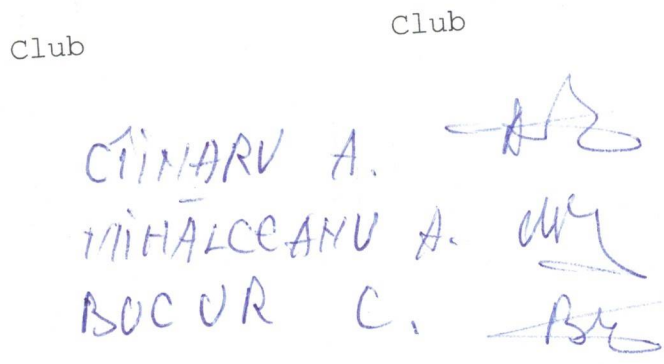 Club Club
CÎINARU A.
MIHĂLCEANU A.
BUCUR C.